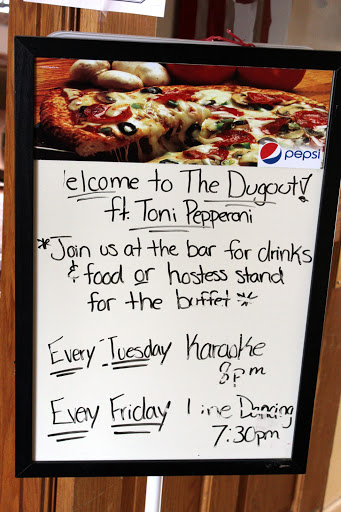 pepsi
Welcome to The Dugout!
ft. Toni Pepperoni
*Join us at the bar for drinks
& food or hostess stand
for the buffet
Every Tuesday Karaoke
8pm
Every Friday Line Dancing
7:30pm